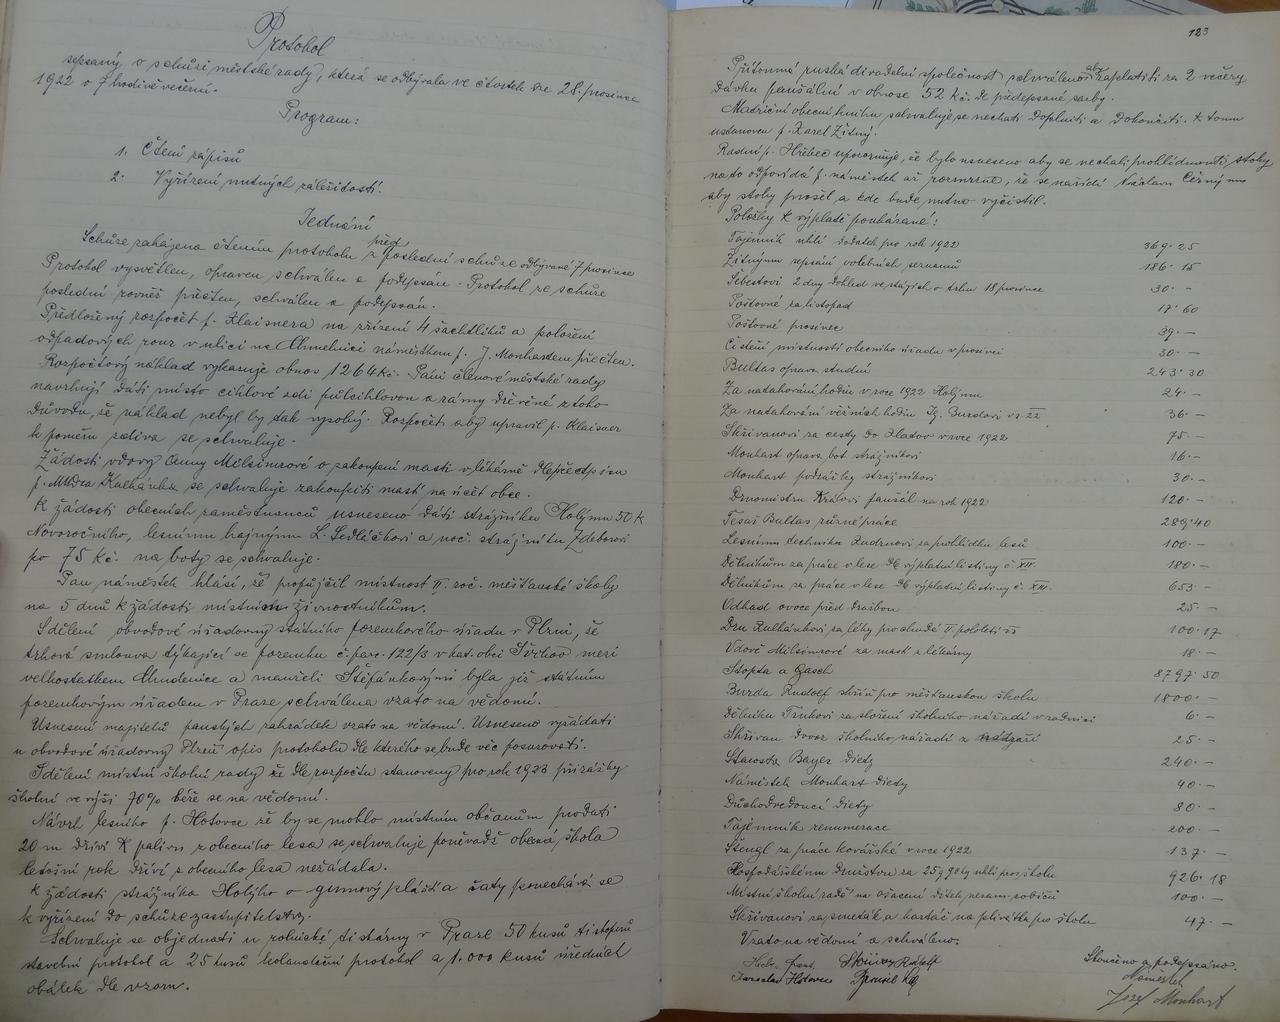 Protokol
sepsaný o schůzi městské rady, která se odbývala ve čtvrtek dne 28. prosince
1922 o 7 hodině večerní.
Program:
1. Čtení zápisů
2. Vyřízení nutných záležitostí.
Jednání
Schůze zahájena čtením protokolu z před poslední schůze odbývané 7 prosince
Protokol vysvětlen, opraven schválen a podepsán. Protokol ze schůze
poslední rovněž přečten, schválen a podepsán.
Předložený rozpočet p. Klaisnera na zřízení 4 šachtlíků a položení
odpadových rour v ulici na Chmelnici náměstkem p. J. Monhartem přečten.
Rozpočtový náklad vykazuje obnos 1264 Kč. Páni členové městské rady
navrhují dáti místo cihlové zdi půlcihlovou a rámy dřevěné z toho
důvodu, že náklad nebyl by tak vysoký. Rozpočet aby upravil p. Klaisner
k poměru zdiva se schvaluje.
Žádosti vdovy Anny Milsimrové o zakoupení masti v lékárně dle předpisu
p. MUDra Kulhánka se schvaluje zakoupiti mast na účet obce.
K žádosti obecních zaměstnanců usneseno dáti strážníku Holýmu 50 K
Novoročního, lesnímu hajnýmu L. Sedláčkovi a noč. strážníku Zdeborovi
po 75 Kč. na boty se schvaluje.
Pan náměstek hlásí, že propůjčil místnost II. roč. měšťanské školy
na 5 dnů k žádosti místním živnostníkům.
Sdělení obvodové úřadovny státního pozemkového úřadu v Plzni, že
trhová smlouva týkající se pozemku č. parc. 122/3 v kat. obci Švihov mezi
velkostatkem Chudenice a manželi Štěpánkovými byla již státním
pozemkovým úřadem v Praze schválena vzato na vědomí.
Usnesení majitelů panských zahrádek vzato na vědomí. Usneseno vyžádati
u obvodové úřadovny Plzeň opis protokolu dle kterého se bude věc posuzovati.
Sdělení místní školní rady že dle rozpočtu stanoveny pro rok 1923 přirážky
školní ve výši 70% béře se na vědomí.
Návrh lesního p. Hotovce že by se mohlo místním občanům prodati
20 m dříví k palivu z obecního lesa se schvaluje poněvadž obecná škola
letošní rok dříví z obecního lesa nežádala.
K žádosti strážníka Holýho o gumový plášť a šaty ponechává se
k vyřízení do schůze zastupitelstva.
Schvaluje se objednati u rolnické tiskárny v Praze 50 kusů tiskopisů
stavební protokol a 25 kusů kolaudační protokol a 1.000 kusů úředních
obálek dle vzoru.
123
Přítomná ruská divadelní společnost schváleno aby zaplatili za 2 večery
dávku paušální v obnose 52 Kč. dle předepsané sazby.
Matriční obecní knihu schvaluje se nechati doplniti a dokončiti. K tomu
ustanoven p. Karel Žitný.
Radní p. Hřebec upozorňuje, že bylo usneseno aby se nechali prohlédnouti stoky
na to odpovídá p. náměstek až rozmrzne, že se nařídí Václavu Černýmu
aby stoky prošel a kde bude nutno vyčistil.
Položky k výplatě poukázané:
Tajemník uhlí dodatek pro rok 1922 369·25
Žitnýmu sepsání volebních seznamů 186·15
Šebestovi 2 dny dohled ve stájích o trhu 18 prosince 30·–
Poštovné za listopad 17·60
Poštovné prosinec 39·–
Čistění místností obecního úřadu v prosinci 30·–
Bultas oprava studní 243·30
Za natahování hodin v roce 1922 Holýmu 24·–
Za natahování věžních hodin Ig. Burdovi 36·–
Skřivanovi za cesty do Klatov v roce 1922 75·–
Monhart oprava bot strážníkovi 16·–
Monhart podrážky strážníkovi 30·–
Drnomistru Královi paušál na rok 1922 120·–
Tesař Bultas různé práce 289·40
Lesnímu techniku Kudrnovi za prohlídku lesů 100·–
Dělníkům za práce v lese dle výplatní listiny č. XII. 180·–
Dělníkům za práce v lese dle výplatní listiny č. XIII. 653·–
Odhad ovoce před dražbou 25·–
Dru Kulhánkovi za léky pro chudé II. pololetí 100·17
Vdově Milsimrové za mast z lékárny 18·–
Stopka a Gasch 8797·50
Burda Rudolf skříň pro měšťanskou školu 1800·–
Dělníku Trnkovi za složení školního nářadí v radnici 6·–
Skřivan dovoz školního nářadí z nádraží 25·–
Starosta Bayer diety 240·–
Náměstek Monhart diety 40·–
Důchodvedoucí diety 80·–
Tajemník remunerace 200·–
Stengl za práce kovářské v roce 1922 137·–
Hospodářskému družstvu za 25 q 90 kg uhlí pro školu 926·18
Místní školní radě na ošacení dítek nezam. rodičů 100·–
Skřivanovi za smeták a kartáč na plivátka pro školu 47·–
Vzato na vědomí a schváleno.
Skončeno a podepsáno.
Skřivan Rudolf
Jaroslav Hotovec
Náměstek
Josef Monhart